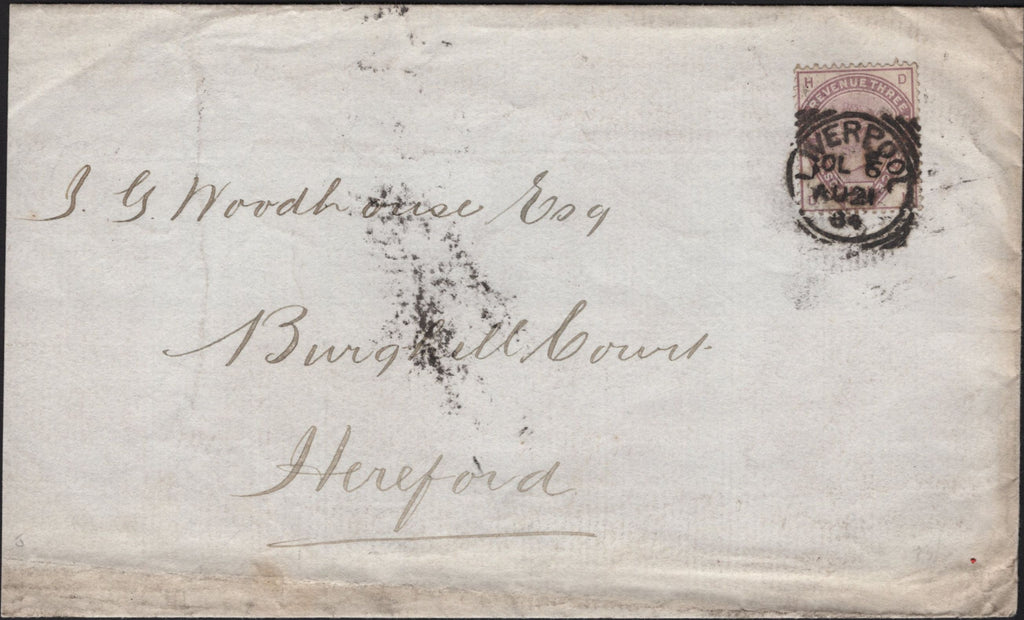 H D
REVENUE THREE
LIVERPOOL
OL 6
AU 21
84
J. G. Woodhouse Esq
Burghill Court
Hereford